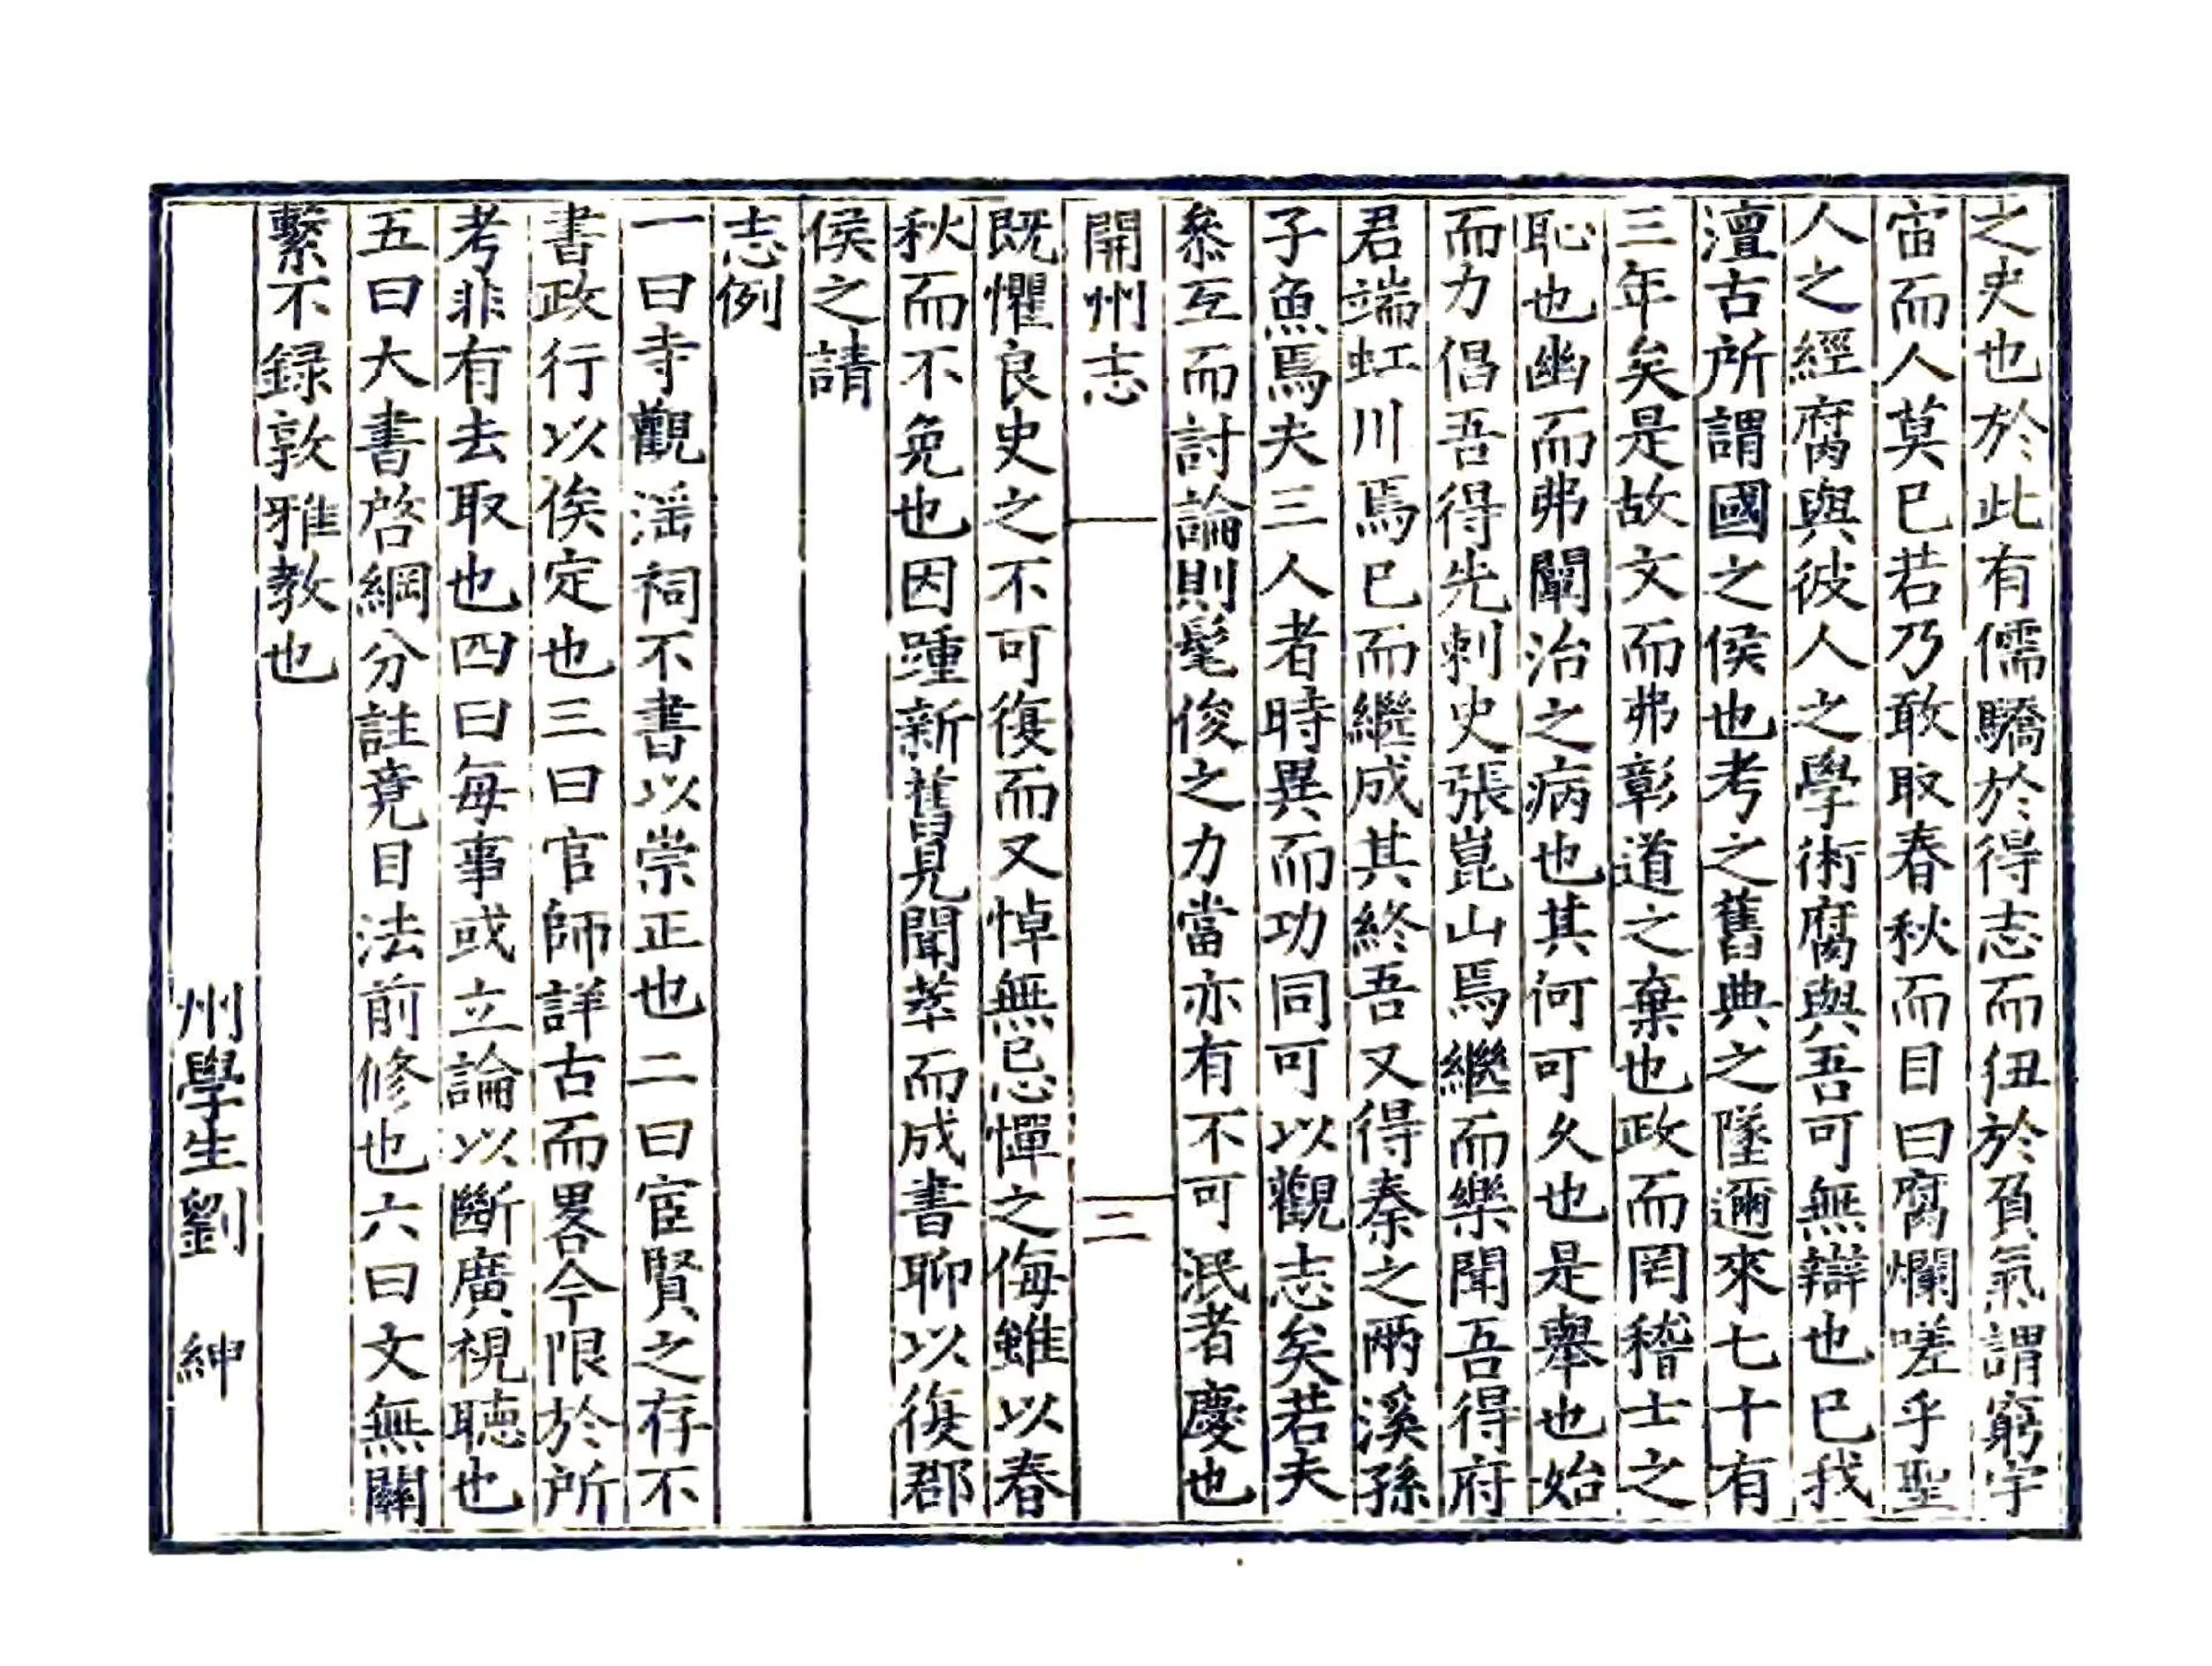 之史也於此有儒驕於得志而伹於負氣謂窮宇
宙而人莫巳若乃敢取春秋而目曰腐爛嗟乎聖
人之經腐與彼人之學術腐與吾可無辯也巳我
澶古所謂國之侯也考之舊典之墜邇來七十有
三年矣是故文而弗彰道之棄也政而罔稽士之
恥也幽而弗闡治之病也其何可久也是舉也始
而力倡吾得先刺史張崑山焉繼而樂聞吾得府
君端虹川焉巳而繼成其終吾又得秦之兩溪孫
子魚焉夫三人者時異而功同可以觀志矣若夫
叅互而討論則髦俊之力當亦有不可泯者慶也
開州志 三
既懼良史之不可復而又悼無忌憚之侮雖以春
秋而不免也因踵新舊見聞萃而成書聊以復郡
侯之請
志例
一曰寺觀滛祠不書以崇正也二曰宦賢之存不
書政行以俟定也三曰官師詳古而畧今限於所
考非有去取也四曰每事或立論以斷廣視聽也
五曰大書啓綱分註竟目法前修也六曰文無關
繫不録敦雅教也
州學生劉 紳